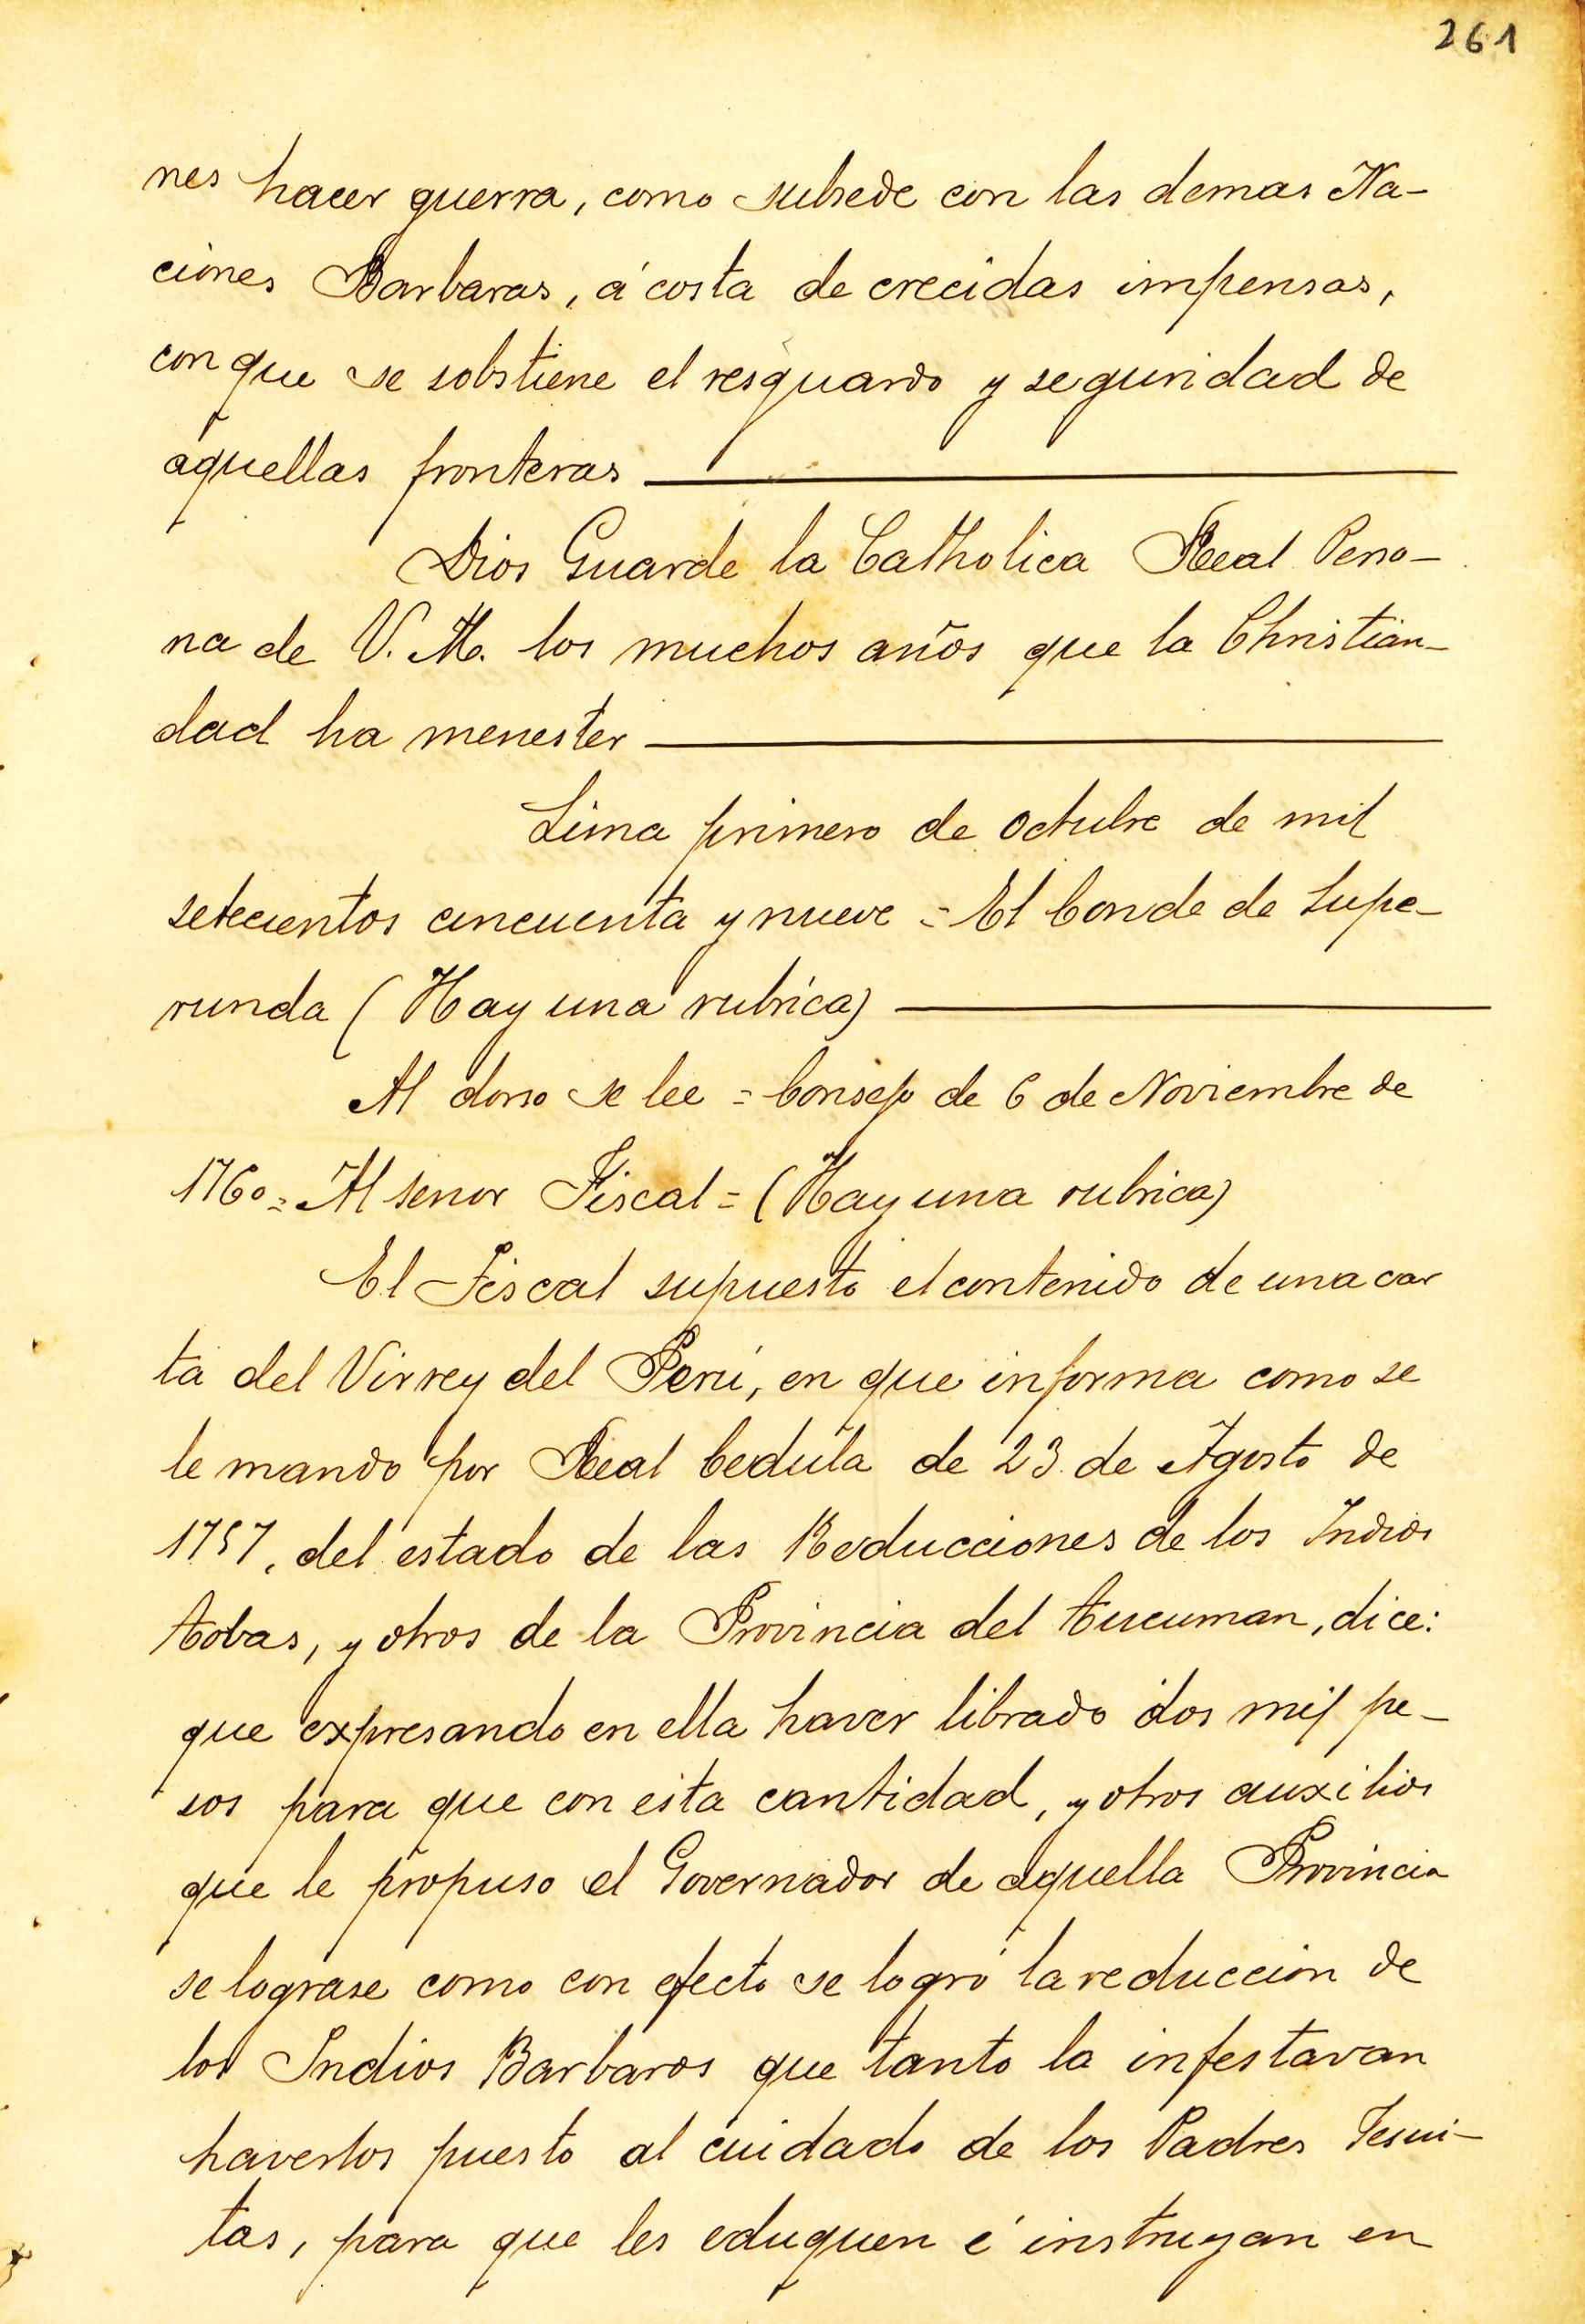 261
nes hacer guerra, como subsede con las demas Na-
ciones Barbaras, á costa de crecidas impensas,
con que se sobstiene el resguardo y seguridad de
aquellas fronteras
Dios Guarde la Catholica Real Perso-
na de V. M. los muchos años que la Christian-
dad ha menester
Lima primero de octubre de mil
setecientos cincuenta y nueve = El Conde de Supe-
runda (Hay una rubrica)
Al dorso se lee = Consejo de 6 de Noviembre de
1760 = Al senor Fiscal = (Hay una rubrica)
El Fiscal supuesto el contenido de una car
ta del Virrey del Perú, en que informa como se
le mando por Real Cedula de 23 de Agosto de
1757, del estado de las Reducciones de los Indios
tobas, y otros de la Provincia del tucuman, dice:
que expresando en ella haver librado dos mil pe-
sos para que con esta cantidad, y otros auxilios
que le propuso el Governador de aquella Provincia
se lograse como con efecto se logró la reduccion de
los Indios Barbaros que tanto la infestavan
haverlos puesto al cuidado de los Padres Jesui-
tas, para que les eduquen é instruyan en